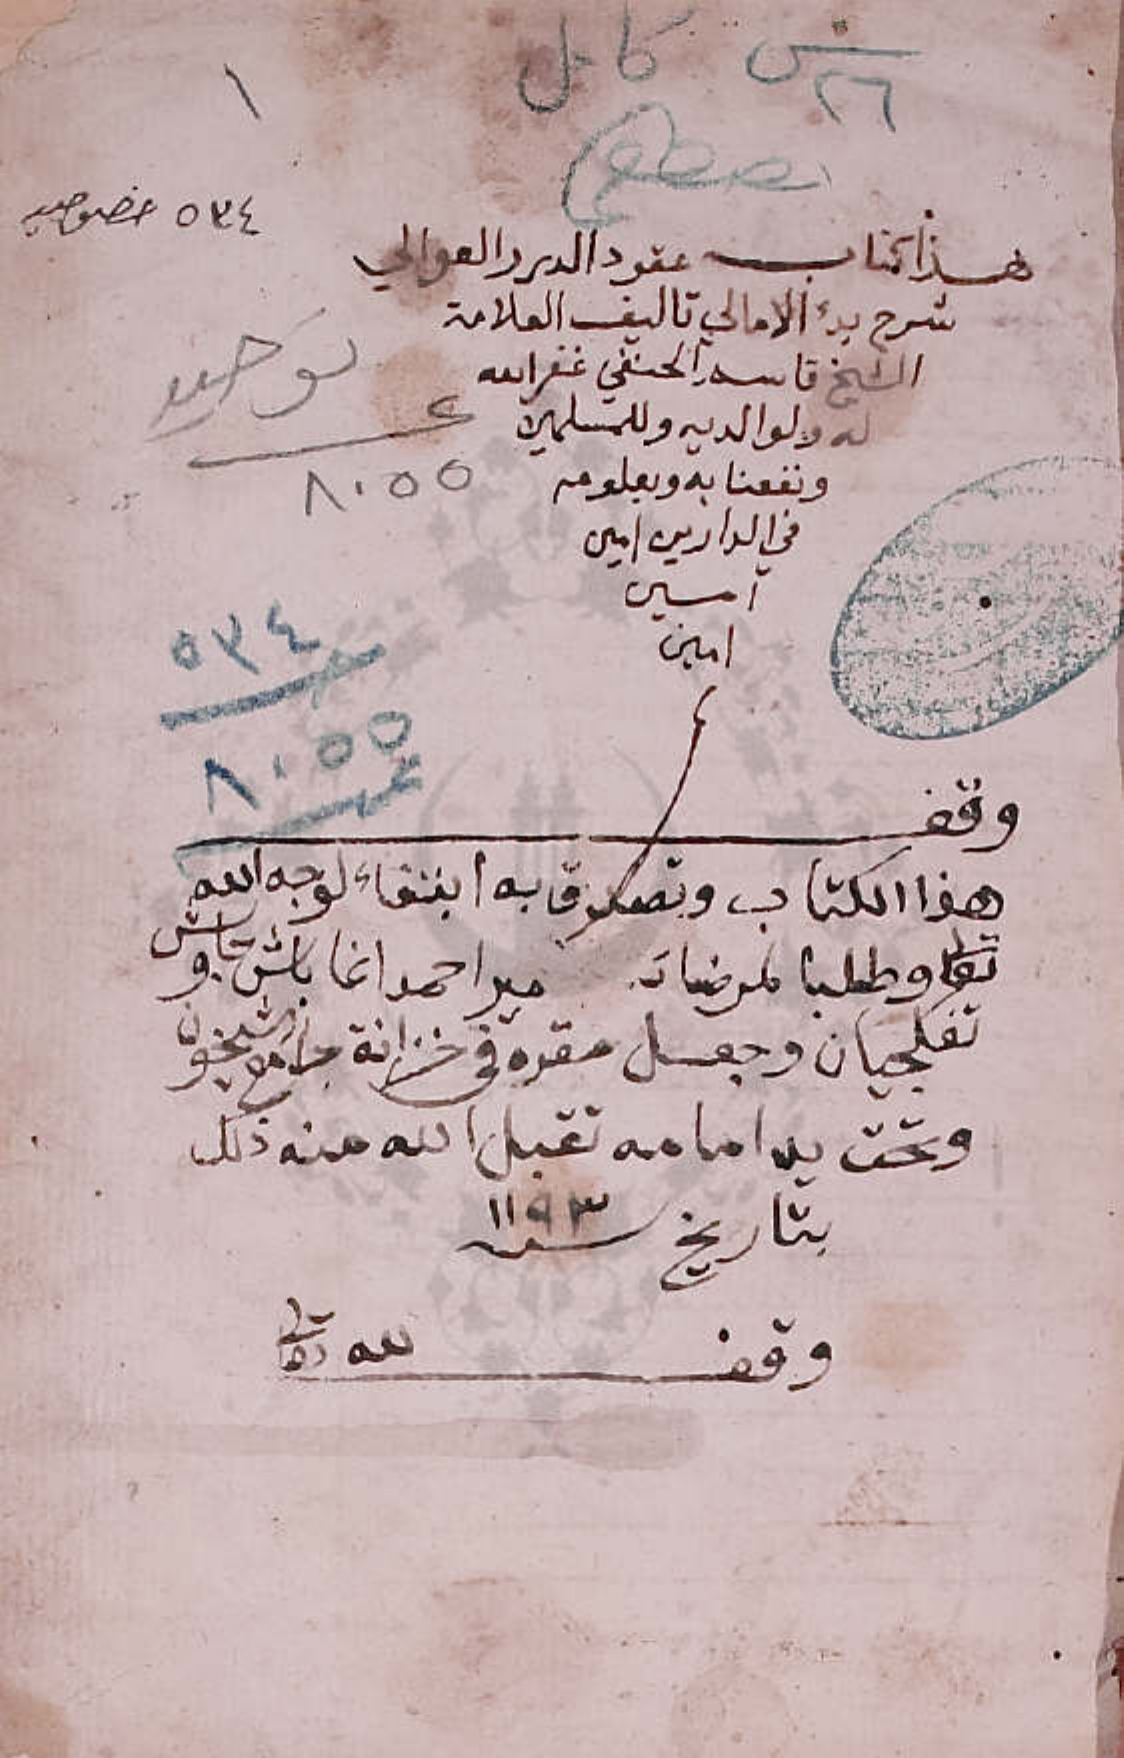 س كامل
٢٦
١
٥٣٤ خصوصيه
هذا كتاب عقود الدرر العوالي
شرح بدء الامالي تاليف العلامة
الشيخ قاسم الحنفي غفر الله
له ولوالديه وللمسلمين
ونفعنا به وبعلومه
في الدارين امين
امين
امين
توحيد
٨٠٥٥
٥٣٤
٨٠٥٥
وقف
هذا الكتاب وتصدق به ابتغاء لوجه الله
تعالى وطلبا لمرضاته مير احمد اغا باش جاويش
تفكجيان وجعل مقره في خزانة جامع شيخون
وتحت يد امامه تقبل الله منه ذلك
بتاريخ سنة ١١٩٣
وقف لله تعالى